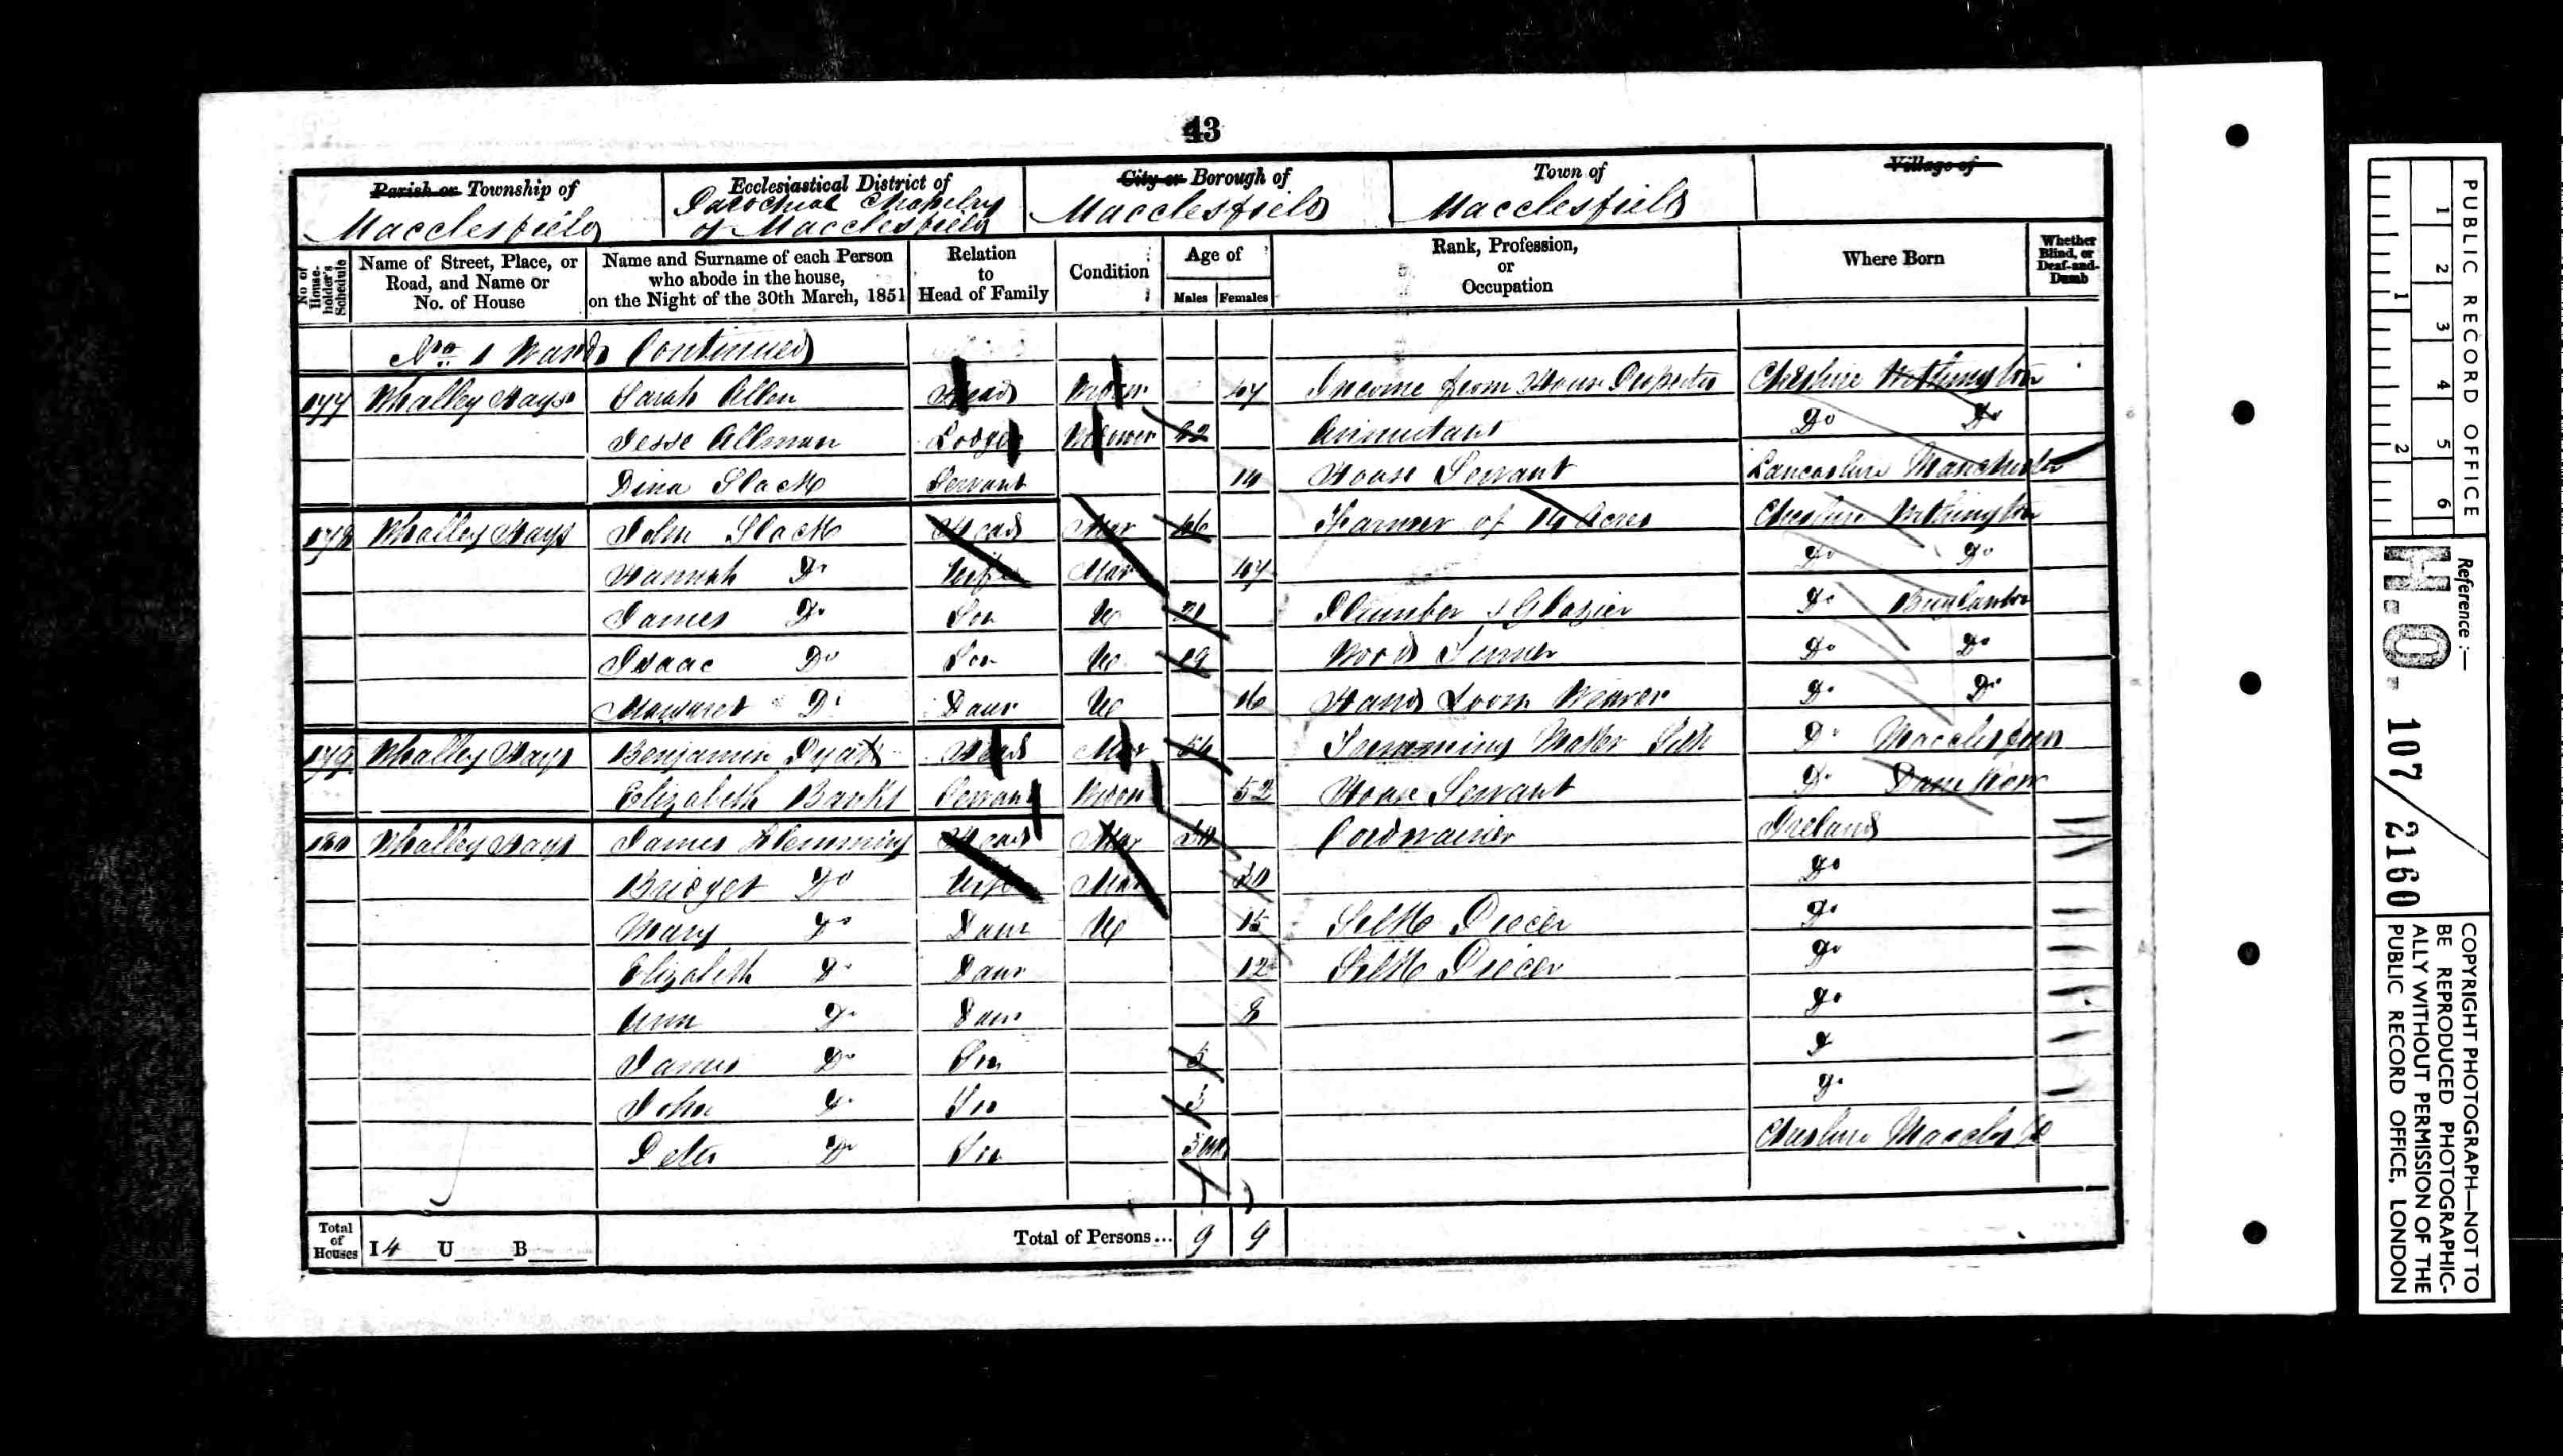 43
Parish or Township of
Macclesfield
Ecclesiastical District of
Parochial Chapelry
of Macclesfield
City or Borough of
Macclesfield
Town of
Macclesfield
Village of
No of House-holder's Schedule
Name of Street, Place, or Road, and Name or No. of House
Name and Surname of each Person who abode in the house, on the Night of the 30th March, 1851
Relation to Head of Family
Condition
Age of
Males Females
Rank, Profession, or Occupation
Where Born
Whether Blind, or Deaf-and-Dumb
No 1 Ward Continued
177 Whalley Hays Sarah Allen Head 47 Income from House Cheshire Withington
Jesse Allman Lodger Wdower 42 Do Do
Dina Slack Servant 14 House Servant Lancashire Manchester
178 Whalley Hays John Slack Head Mar 46 Farmer of 14 Acres Cheshire Withington
Hannah Do Wife Mar 47 Do Do
James Do Son U 21 Plumber & Glazier Do
Isaac Do Son U 19 Wood Turner Do Do
Margaret Do Daur U 16 Hand Loom Weaver Do Do
179 Whalley Hays Benjamin Head Mar Trimming Maker Silk Do
Elizabeth Banks Servant 52 House Servant Do
180 Whalley Hays James Flemming Head Mar Cordwainer Ireland
Bridget Do Wife Mar Do
Mary Do Daur U 15 Silk Piecer Do
Elizabeth Do Daur 12 Silk Piecer Do
Ann Do Daur 8 Do
James Do Son 5 Do
John Do Son 3 Do
Peter Do Son Cheshire
Total of Houses I 4 U B
Total of Persons... 9 9
PUBLIC RECORD OFFICE
1 2 3 4 5 6
1 2
Reference :—
H.O. 107 / 2160
COPYRIGHT PHOTOGRAPH—NOT TO
BE REPRODUCED PHOTOGRAPHIC-
ALLY WITHOUT PERMISSION OF THE
PUBLIC RECORD OFFICE, LONDON